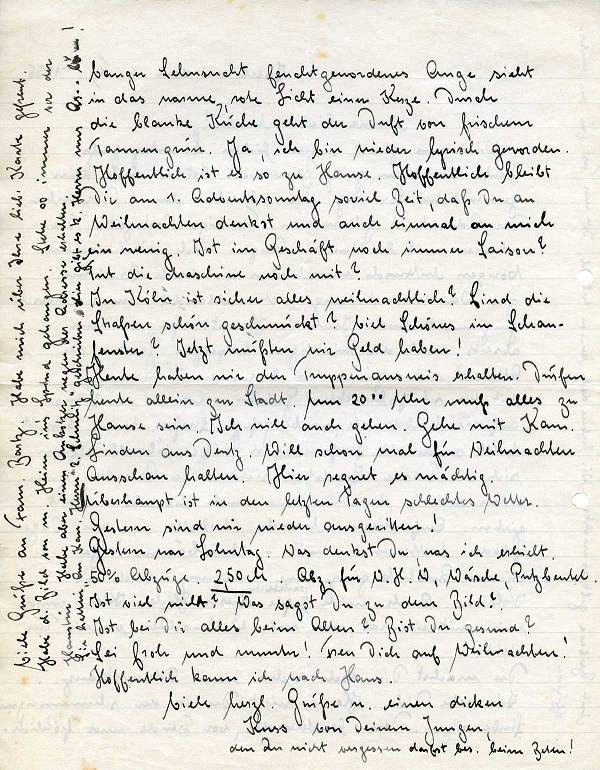 banger Sehnsucht feuchtgewordenes Auge sieht
in das warme, rote Licht einer Kerze. Durch
die blanke Küche geht der Duft von frischem
Tannengrün. Ja, ich bin wieder lyrisch geworden.
Hoffentlich ist es so zu Hause. Hoffentlich bleibt
Dir am 1. Adventssonntag soviel Zeit, daß Du an
Weihnachten denkst und auch einmal an mich
ein wenig. Ist im Geschäft noch immer Saison?
Tut die Maschine noch mit?
In Köln ist sicher alles weihnachtlich? Sind die
Straßen schön geschmückt? Viel Schönes im Schau-
fenster? Jetzt müßten wir Geld haben!
Heute haben wir den Truppenausweis erhalten. Dürfen
heute allein zur Stadt. Um 20°° Uhr muß alles zu
Hause sein. Ich will auch gehen. Gehe mit Kam.
Linden aus Deutz. Will schon mal für Weihnachten
Ausschau halten. Hier regnet es mächtig.
Überhaupt ist in den letzten Tagen schlechtes Wetter.
Gestern sind wir wieder ausgeritten!
Gestern war Sohntag. Was denkst Du, was ich erhielt.
50% Abzüge 2,50 M Abz. für W.H.W, Wäsche, Putzbeutel.
Ist viel nicht? Was sagst Du zu dem Bild?
Ist bei Dir alles beim Alten? Bist Du gesund?
Sei froh und munter! Freu Dich auf Weihnachten!
Hoffentlich kann ich nach Haus.
Viele herzl. Grüße u. einen dicken
Kuss von Deinem Jungen
den Du nicht vergessen darfst bes. beim Beten!
Viele Grüße an Fam. Bartz. Habe mich über Deine lieb. Karte gefreut.
Habe d. Bild von u. Heim ins Spind gehangen. Stehe so immer vor der
Haustür. Habe aber einen wegen der Adresse erhalten.
Du hattest an Kan. Herrn geschrieben. Hier gibt es k. Herrn nur